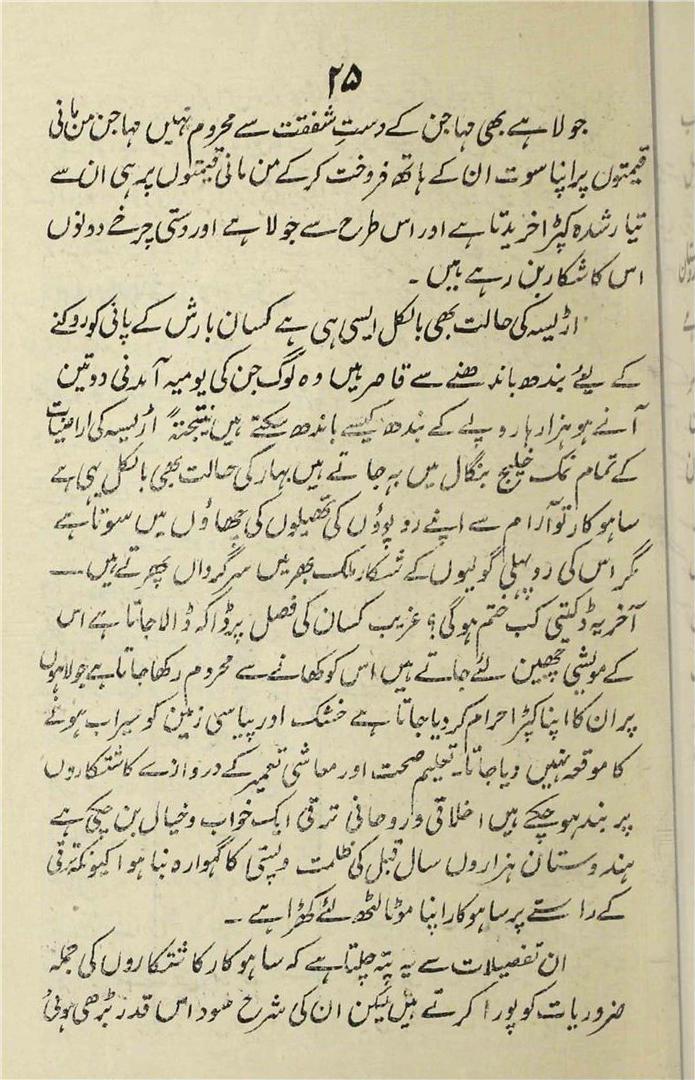 ۲۵
جولاہے بھی مہاجن کے دستِ شفقت سے محروم نہیں مہاجن من مانی
قیمتوں پر اپنا سوت ان کے ہاتھ فروخت کر کے من مانی قیمتوں پر ہی ان سے
تیار شدہ کپڑا خریدتا ہے اور اس طرح سے جولاہے اور دستی چرخے دونوں
اس کا شکار بن رہے ہیں ۔
اڑیسہ کی حالت بھی بالکل ایسی ہی ہے کسان بارش کے پانی کو روکنے
کے لیے بندھ باندھنے سے قاصر ہیں وہ لوگ جن کی یومیہ آمدنی دو تین
آنے ہو ہزارہا روپے کے بندھ کیسے باندھ سکتے ہیں نتیجتہً اڑیسہ کی اراضیات
کے تمام نمک خلیج بنگال میں بہ جاتے ہیں بہار کی حالت بھی بالکل یہی ہے
ساہوکار تو آرام سے اپنے روپوؤں کی تھیلوں کی چھاؤں میں سوتا ہے
مگر اس کی روپہلی گولیوں کے شکار ملک بھر میں سرگرداں پھرتے ہیں ــ
آخر یہ ڈکیتی کب ختم ہوگی؟ غریب کسان کی فصل پر ڈاکہ ڈالا جاتا ہے اس
کے مویشی چھین لئے جاتے ہیں اس کو کھانے سے محروم رکھا جاتا ہے جولاہوں
پر ان کا اپنا کپڑا حرام کر دیا جاتا ہے خشک اور پیاسی زمین کو سیراب ہونے
کا موقعہ نہیں دیا جاتا۔ تعلیم صحت اور معاشی تعمیر کے دروازے کاشتکاروں
پر بند ہو چکے ہیں اخلاقی و روحانی ترقی ایک خواب و خیال بن چکی ہے
ہندوستان ہزاروں سال قبل کی ظلمت و پستی کا گہوارہ بنا ہوا کیونکہ ترقی
کے راستے پر ساہوکار اپنا موٹا لٹھ لئے کھڑا ہے ۔
ان تفصیلات سے یہ پتہ چلتا ہے کہ ساہوکار کاشتکاروں کی جملہ
ضروریات کو پورا کرتے ہیں لیکن ان کی شرح سود اس قدر بڑھی ہوئی